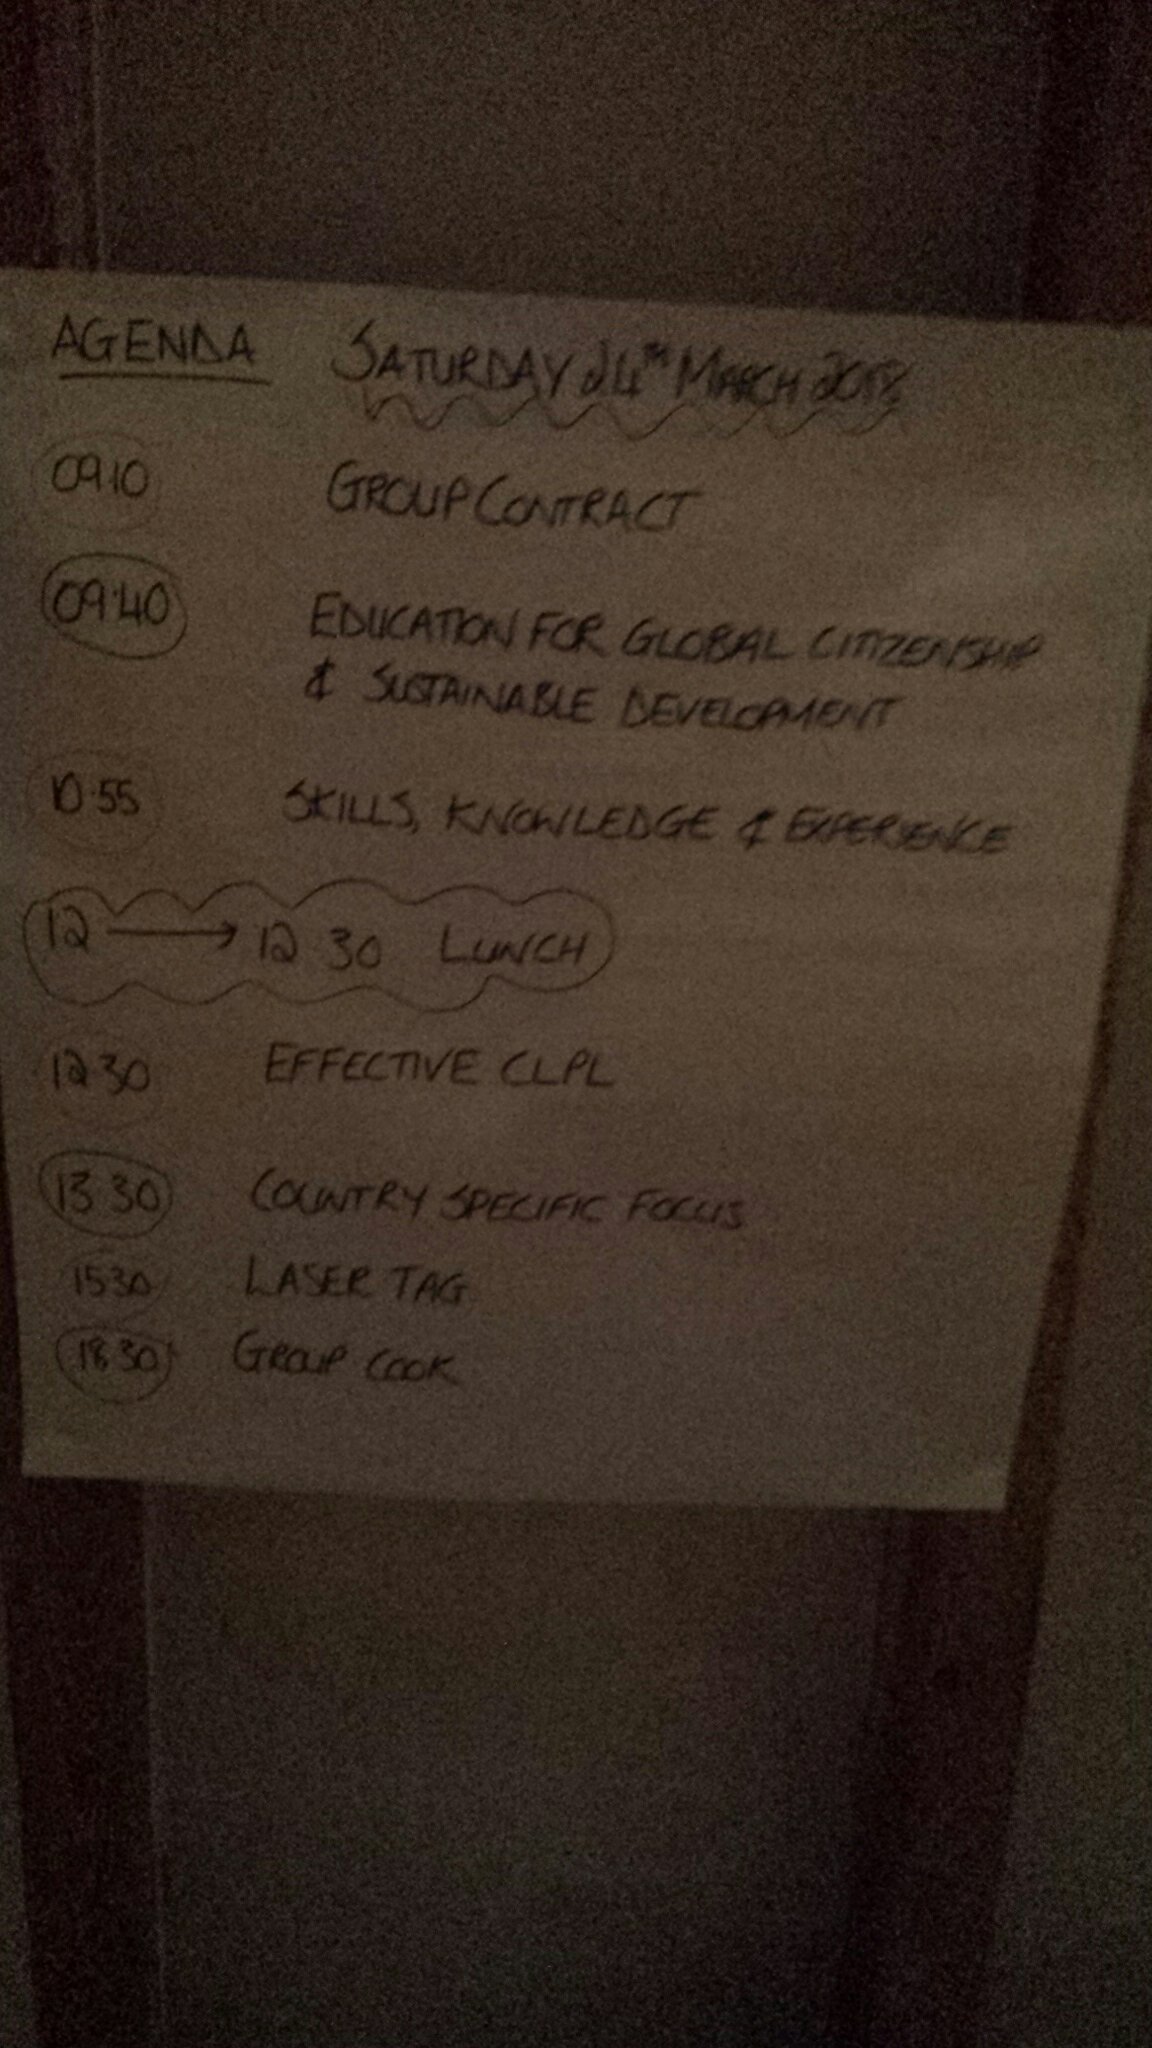 AGENDA SATURDAY 24TH MARCH 2018
09.10 GROUP CONTRACT
09.40 EDUCATION FOR GLOBAL CITIZENSHIP
& SUSTAINABLE DEVELOPMENT
10.55 SKILLS, KNOWLEDGE & EXPERIENCE
12 → 12 30 LUNCH
12 30 EFFECTIVE CLPL
13 30 COUNTRY SPECIFIC FOCUS
1530 LASER TAG
18 30 GROUP COOK